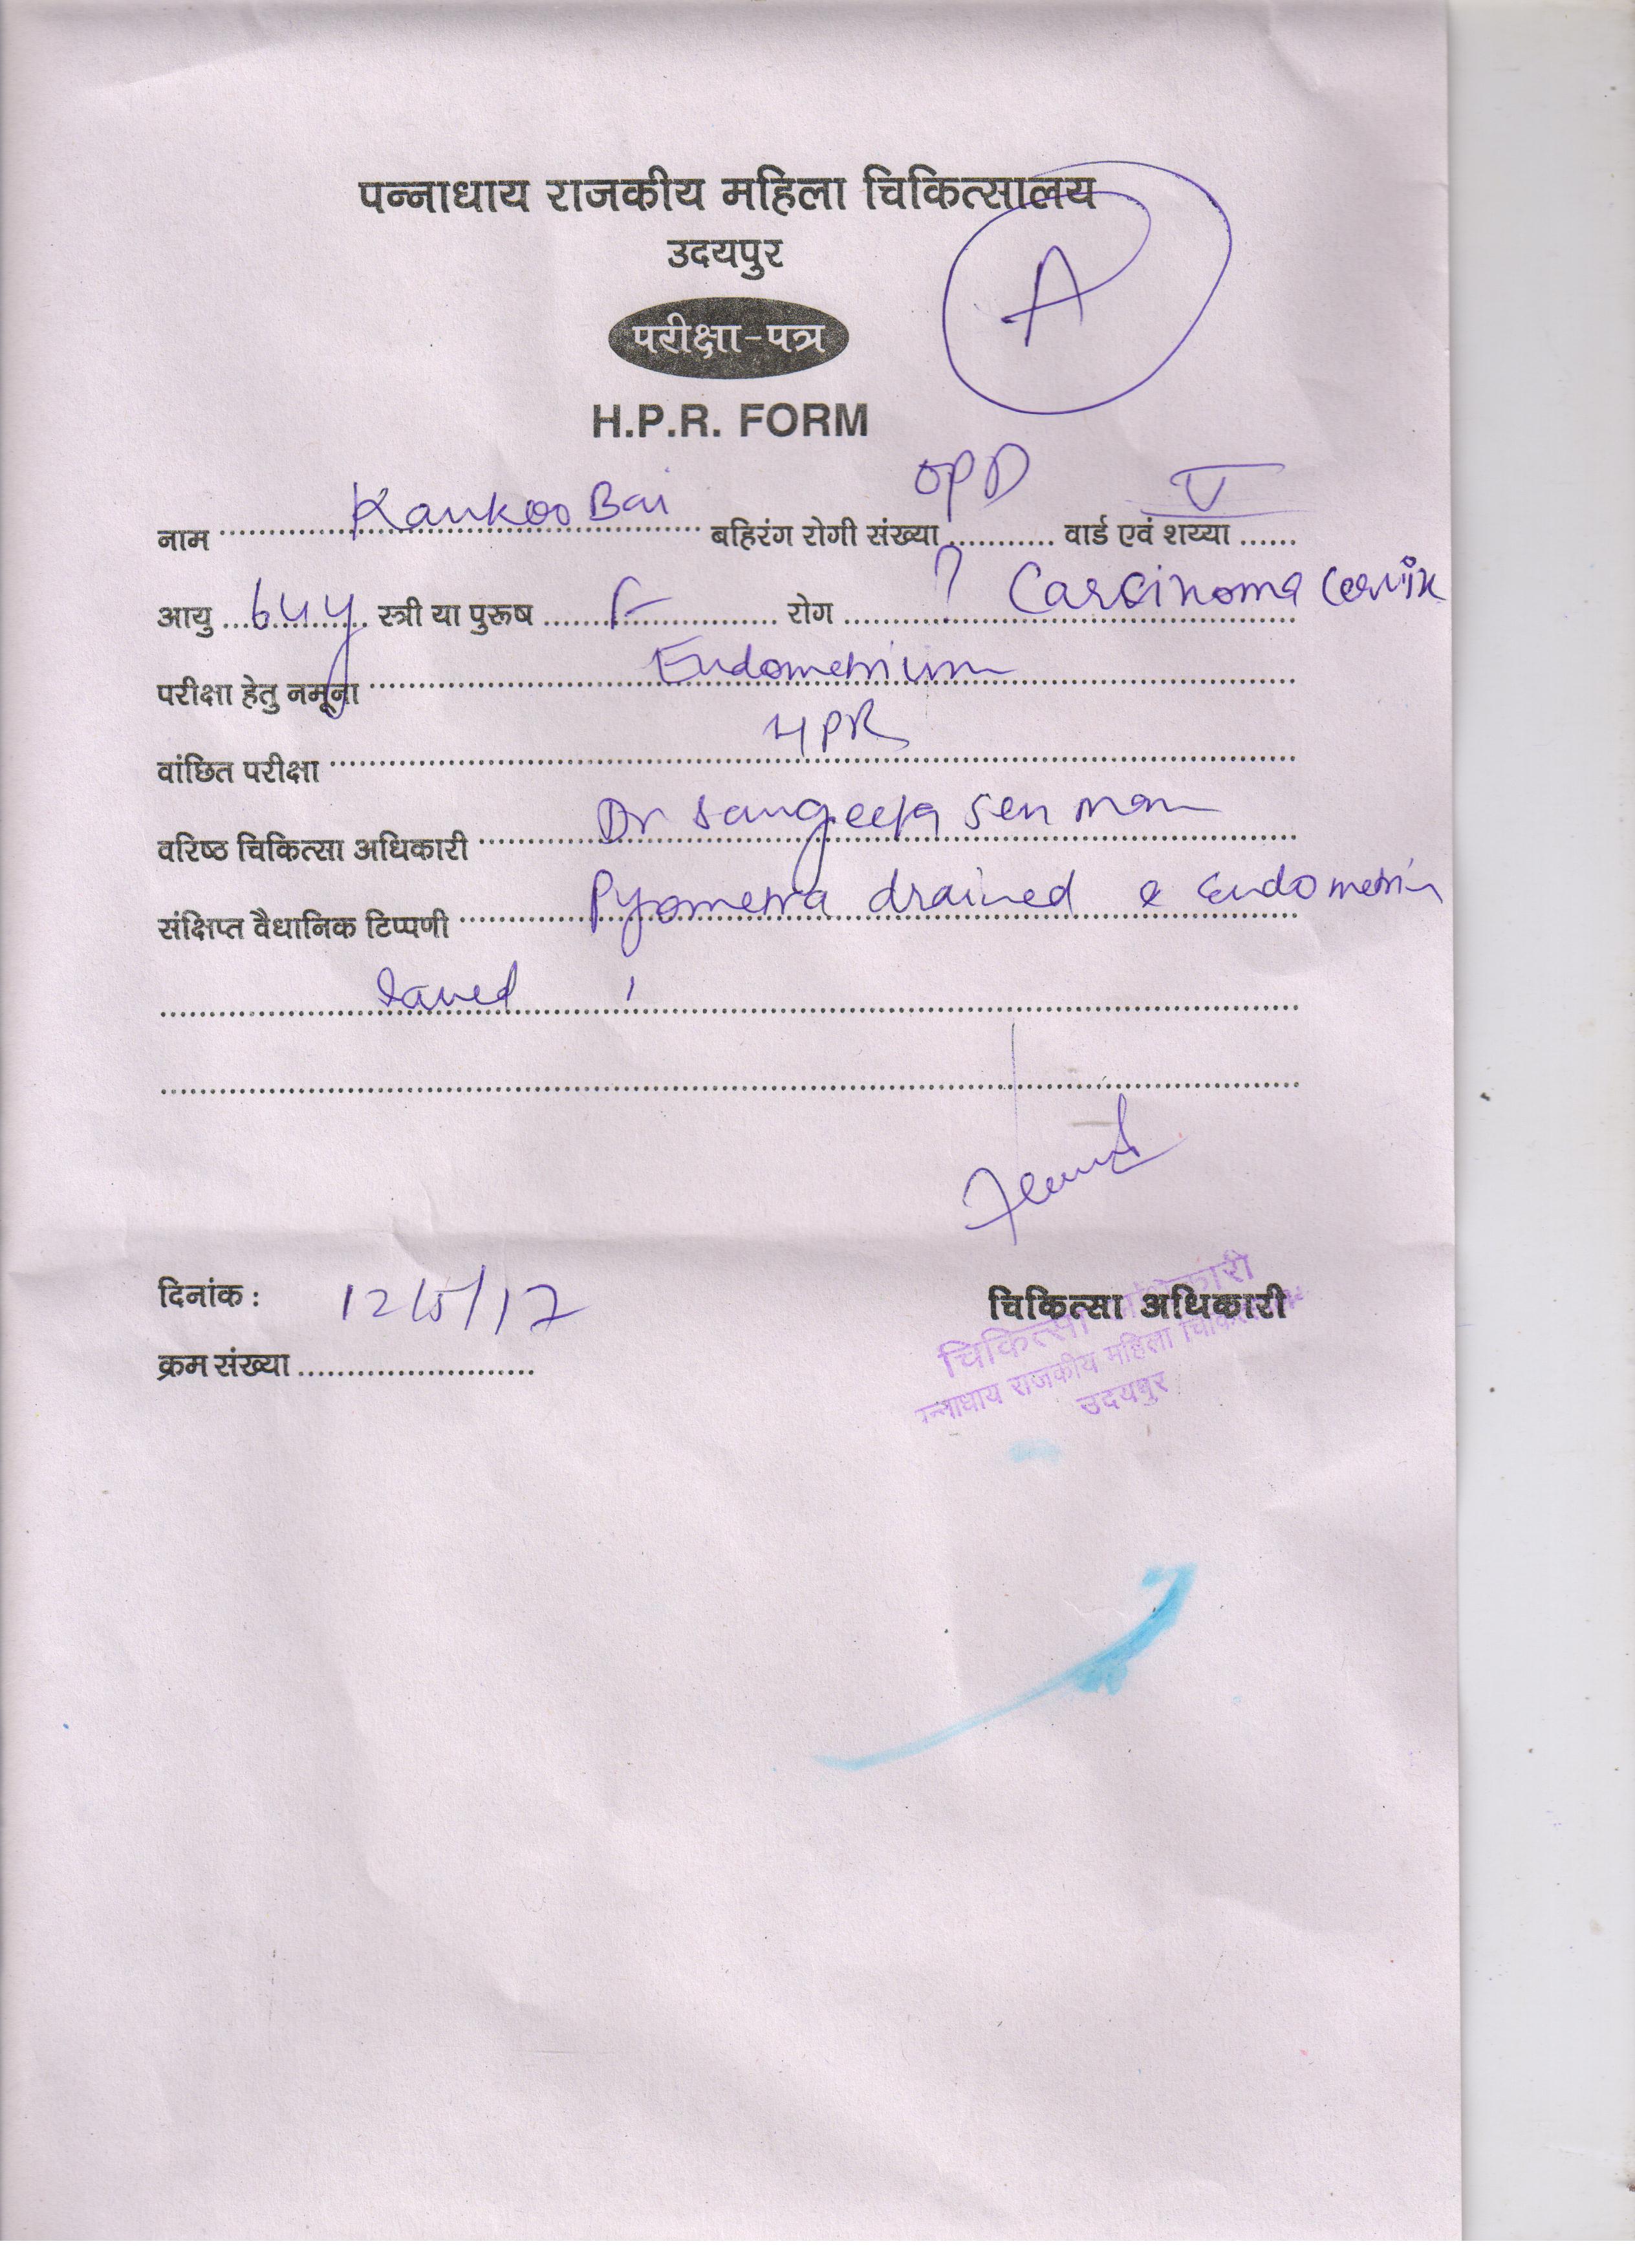 पन्नाधाय राजकीय महिला चिकित्सालय
उदयपुर
A
परीक्षा-पत्र
H.P.R. FORM
नाम Kankoo Bai बहिरंग रोगी संख्या OPD वार्ड एवं शय्या V
आयु 64y स्त्री या पुरूष F रोग ? Carcinoma Cervix
परीक्षा हेतु नमूना Endometrium
वांछित परीक्षा HPR
वरिष्ठ चिकित्सा अधिकारी Dr Sangeeta Sen mam
संक्षिप्त वैधानिक टिप्पणी Pyometra drained & Endometrium
दिनांक : 12/5/17
चिकित्सा अधिकारी
चिकित्सा अधिकारी
न्नाधाय राजकीय महिला
उदयपुर
क्रम संख्या